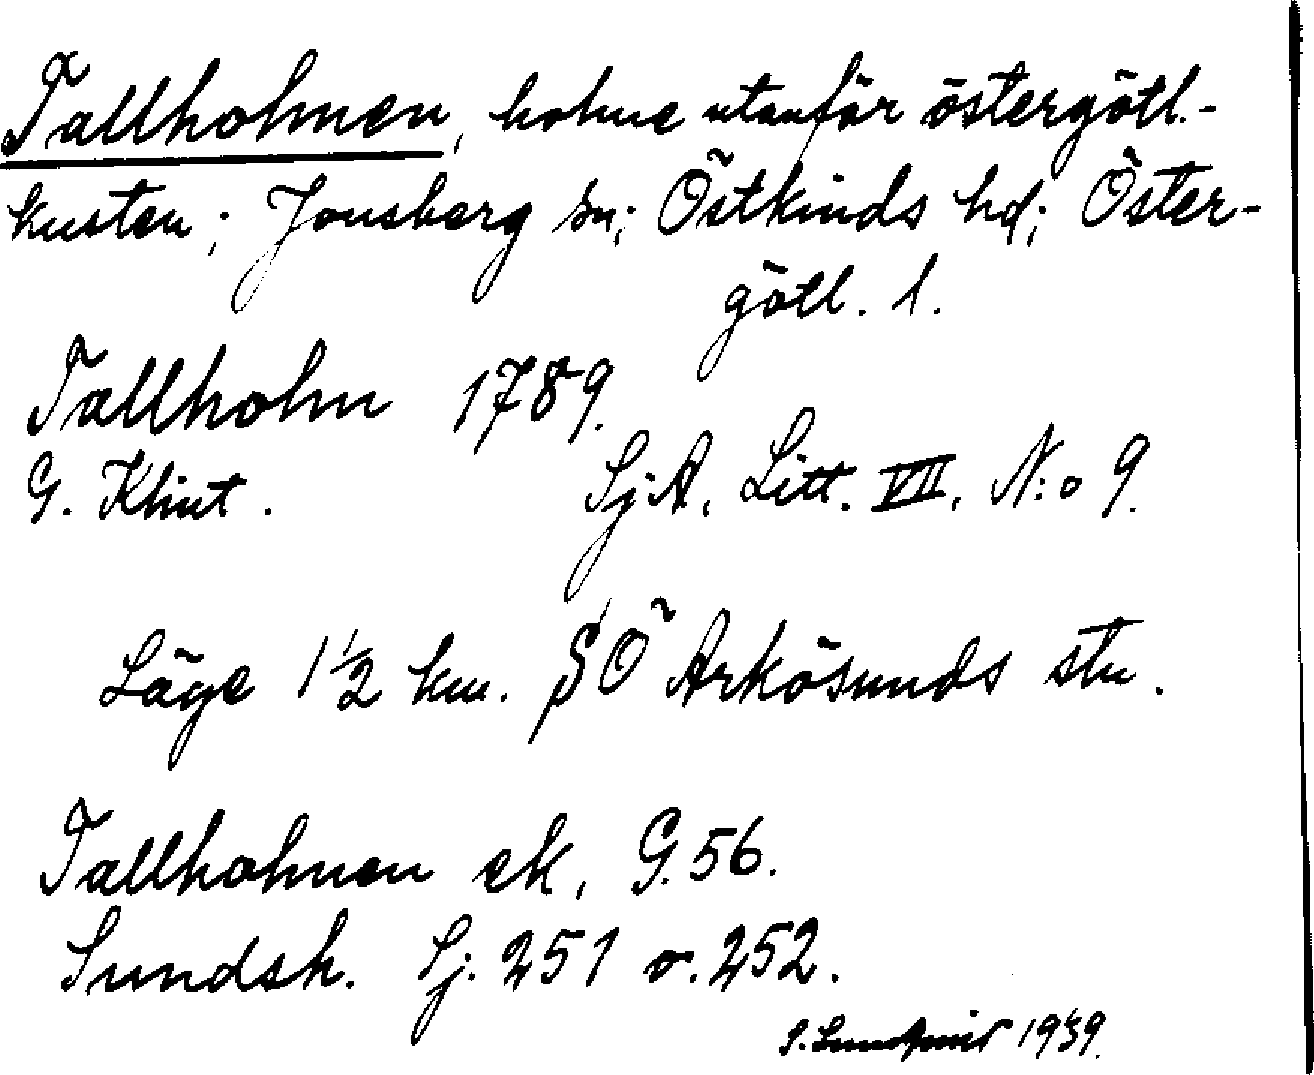 Tallholmen, holme utanför östergötl.-
kusten; Jonsberg sn; Östkinds hd; Öster-
götl. l.
Tallholm 1789.
G. Klint. SjA, Litt. VII, N:o 9.
Läge 1 1/2 km. SÖ Arkösunds stn.
Tallholmen ek, G. 56.
Sundsh. Sj. 251 o. 252.
S. Lundqvist 1939.